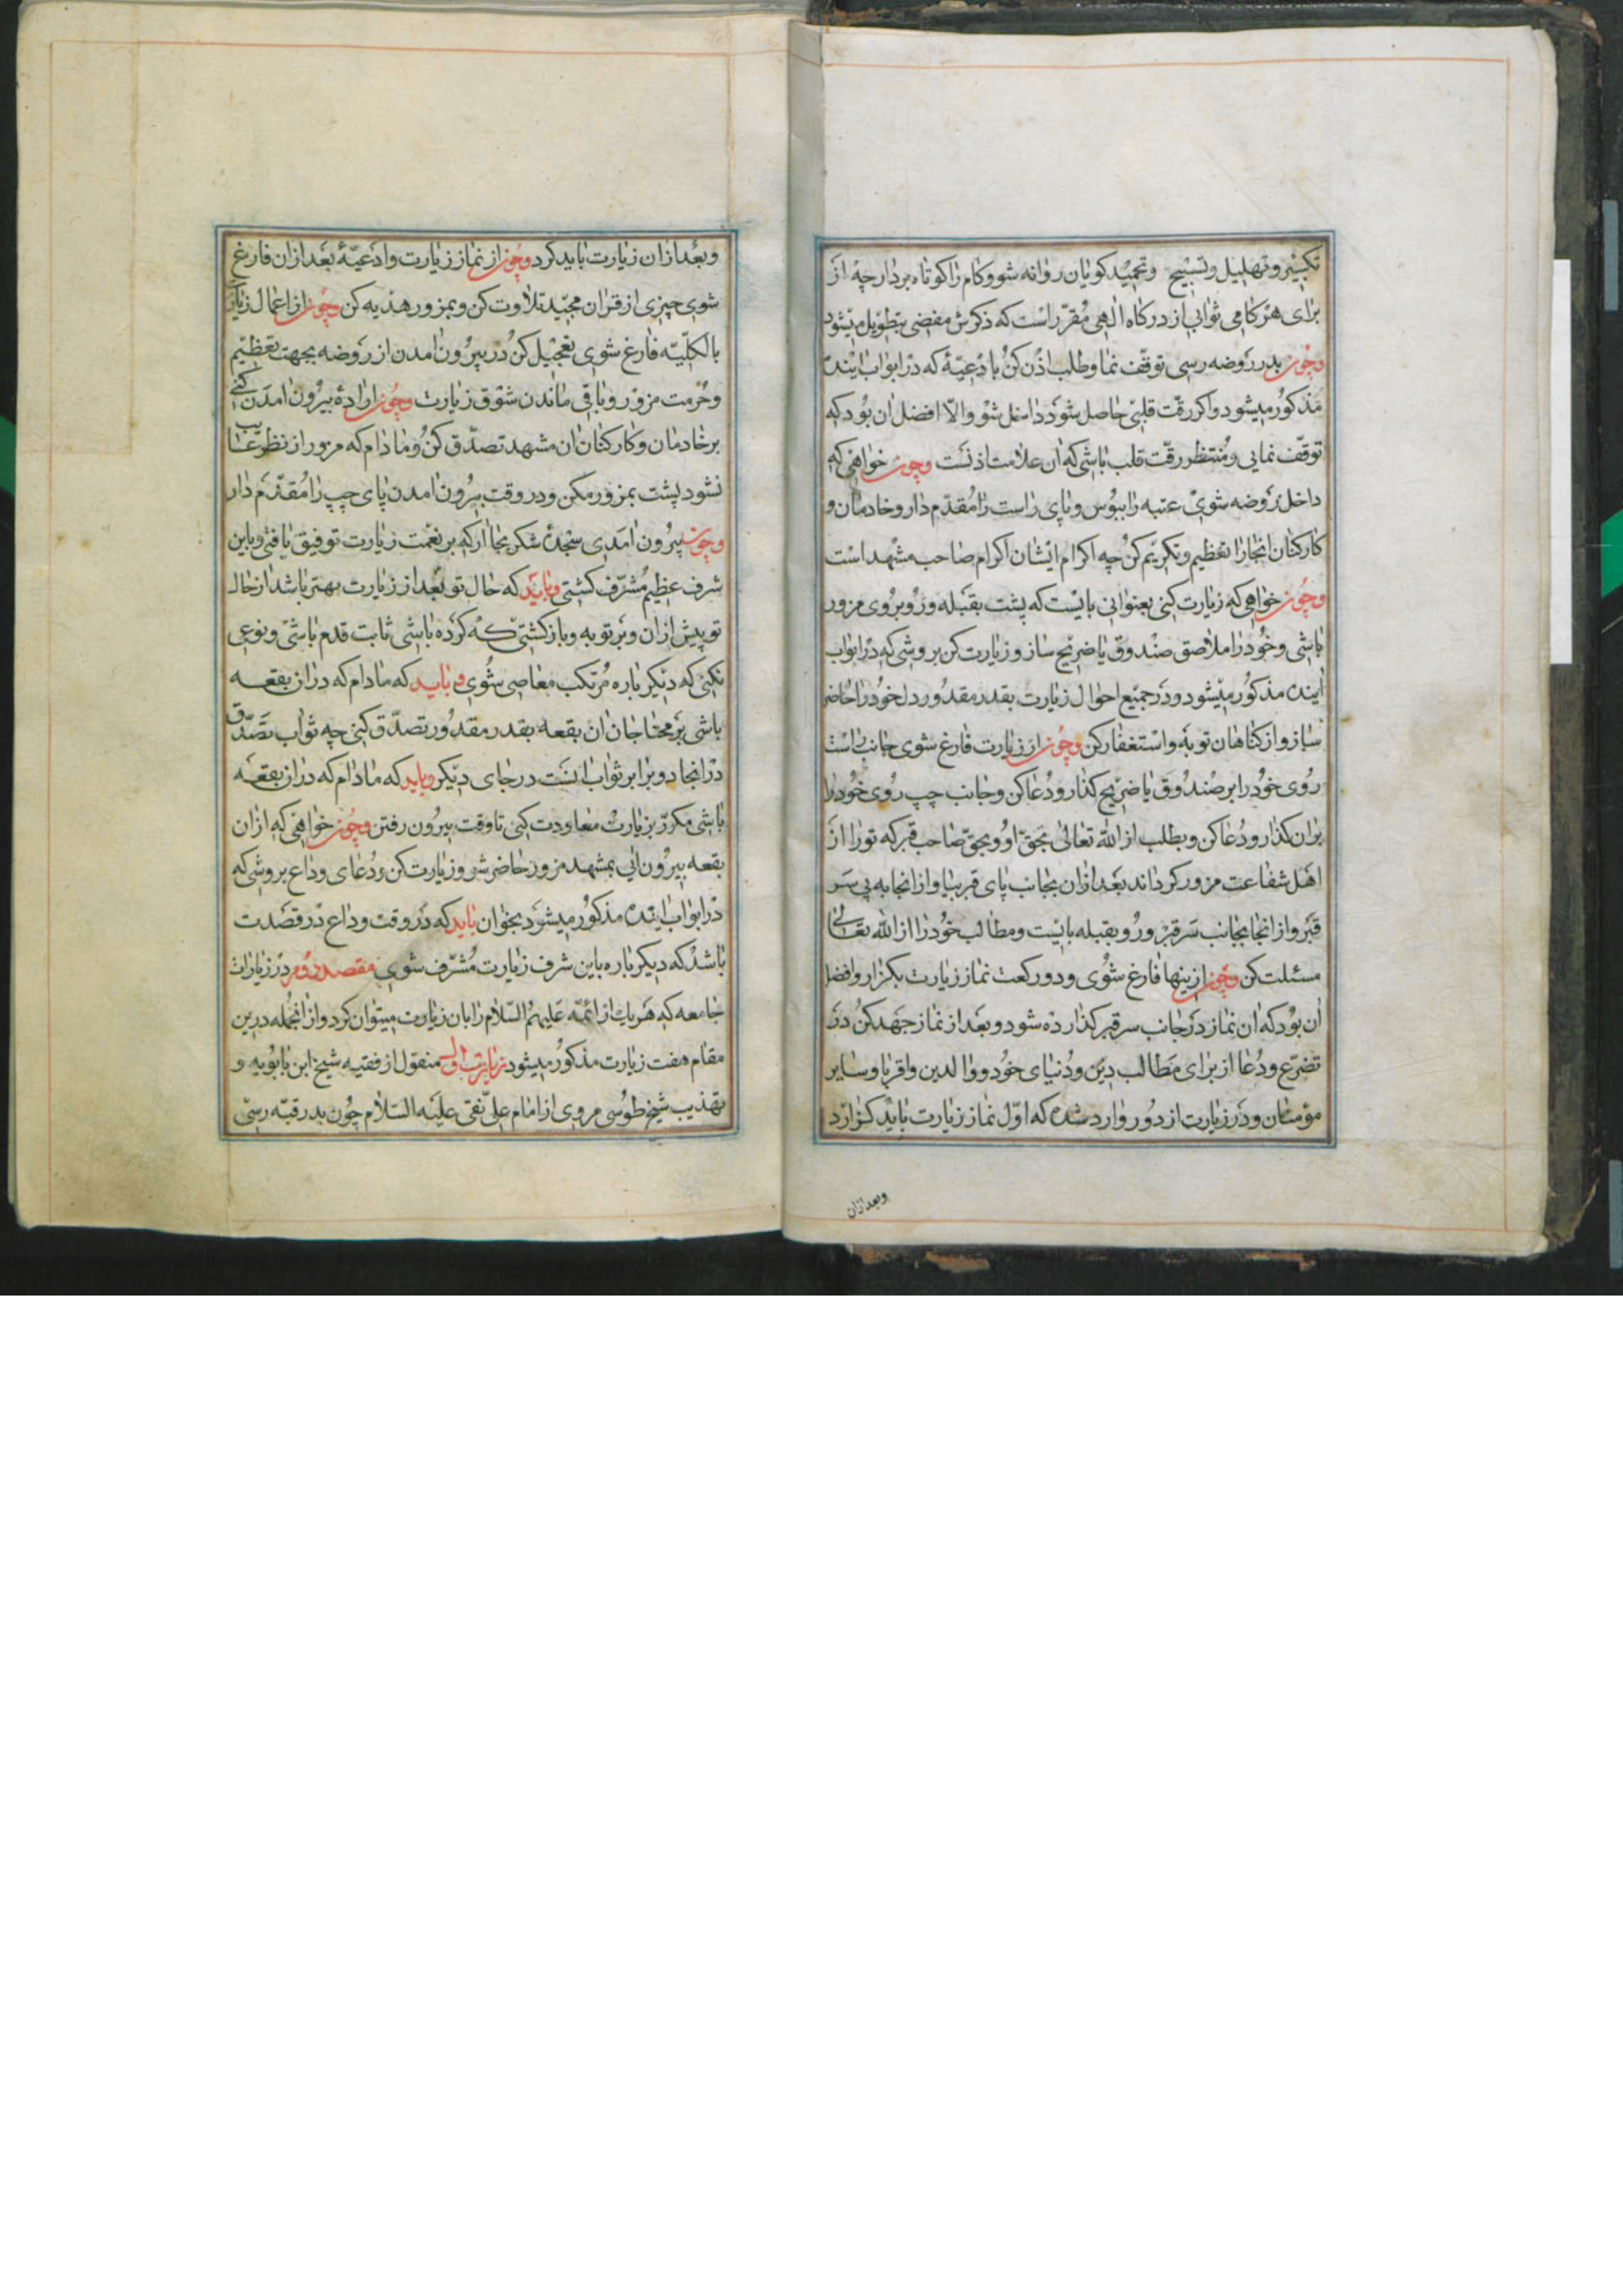 تکبیر و تهلیل و تسبیح و تحمید کویان روانه شو و کام را کوتاه بردار چه از
برای هر کامی ثوابی از درکاه الهی مقرر است که ذکرش مفضی بتطویل میشود
و چون بدر روضه رسی توقف نما و طلب اذن کن با دعیهٔ که در ابواب اینده
مذکور میشود و اکر رقت قلبی حاصل شود داخل شو و الا افضل ان بود که
توقف نمایی و منتظر رقت قلب باشی که ان علامت اذنست و چون خواهی که
داخل روضه شوی عتبه را ببوس و پای راست را مقدم دار و خادمان و
کارکنان انجا را تعظیم و تکریم کن چه اکرام ایشان اکرام صاحب مشهد است
و چون خواهی که زیارت کنی بعنوانی بایست که پشت بقبله و رو بروی مزور
باشی و خود را ملاصق صندوق یا ضریح ساز و زیارت کن بروشی که در ابواب
اینده مذکور میشود و در جمیع احوال زیارت بقدر مقدور دل خود را حاضر
ساز و از کناهان توبه و استغفار کن و چون از زیارت فارغ شوی جانب راست
روی خود را بر صندوق یا ضریح کذار و دعا کن و جانب چپ روی خود را
بران کذار و دعا کن و بطلب از الله تعالی بحق او و بحق صاحب قبر که تو را از
اهل شفاعت مزور کرداند بعد ازان بجانب پای قبر بیا و از انجا به پی سر
قبر و از انجا بجانب سر قبر و رو بقبله بایست و مطالب خود را از الله تعالی
مسئلت کن و چون ازینها فارغ شوی و دو رکعت نماز زیارت بکزار و افضل
ان بود که ان نماز در جانب سر قبر کذارده شود و بعد از نماز جهد کن در
تضرع و دعا از برای مطالب دین و دنیای خود و والدین و اقربا و سایر
مؤمنان و در زیارت از دور وارد شده که اول نماز زیارت باید کزارد
و بعد ازان
و بعد ازان زیارت باید کرد و چون از نماز زیارت و ادعیهٔ بعد ازان فارغ
شوی چیزی از قران مجید تلاوت کن و بمزور هدیه کن و چون از اعمال زیارت
بالکلیه فارغ شوی تعجیل کن در بیرون امدن از روضه بجهت تعظیم
و حرمت مزور و باقی ماندن شوق زیارت و چون ارادهٔ بیرون امدن کنی
بر خادمان و کارکنان ان مشهد تصدق کن و مادام که مزور از نظر غایب
نشود پشت بمزور مکن و در وقت بیرون امدن پای چپ را مقدم دار
و چون بیرون امدی سجدهٔ شکر بجا ار که بر نعمت زیارت توفیق یافتی و باین
شرف عظیم مشرف کشتی و باید که حال تو بعد از زیارت بهتر باشد از حال
تو پیش ازان و بر توبه و بازکشتی که کرده باشی ثابت قدم باشی و نوعی
نکنی که دیکر باره مرتکب معاصی شوی و باید که مادام که دران بقعه
باشی بر محتاجان ان بقعه بقدر مقدور تصدق کنی چه ثواب تصدق
در انجا دو برابر ثواب انست در جای دیکر و باید که مادام که دران بقعه
باشی مکرر بزیارت معاودت کنی تا وقت بیرون رفتن و چون خواهی که ازان
بقعه بیرون ایی بمشهد مزور حاضر شو و زیارت کن و دعای وداع بروشی که
در ابواب اینده مذکور میشود بخوان باید که در وقت وداع در قصدت
باشد که دیکر باره باین شرف زیارت مشرف شوی مقصد دوم در زیارات
جامعه که هر یک از ائمه علیهم السلام را بان زیارت میتوان کرد و از انجمله درین
مقام هفت زیارت مذکور میشود زیارت اول منقول از فقیه شیخ ابن بابویه و
تهذیب شیخ طوسی مروی از امام علی نقی علیه السلام چون بدر قبه رسی